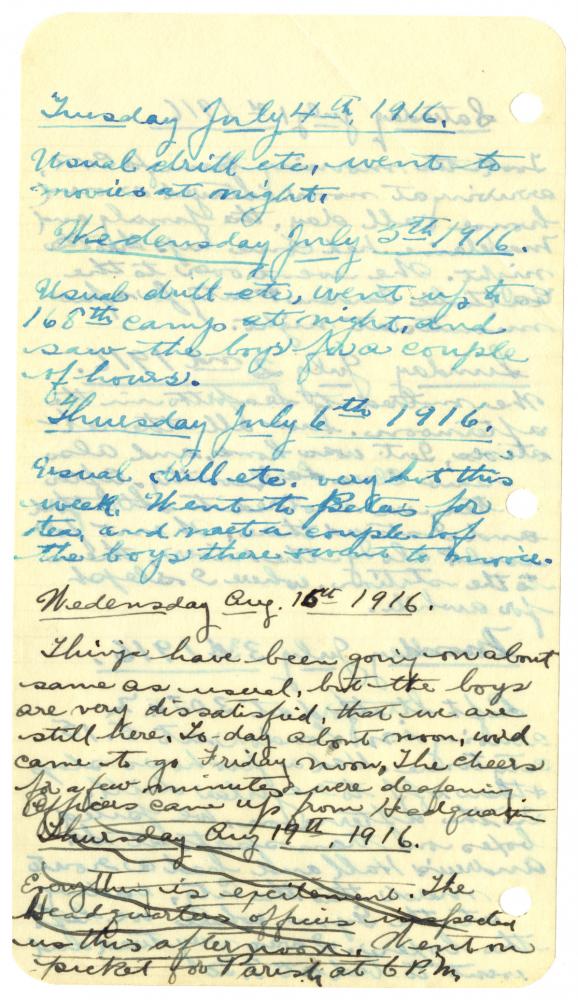 Tuesday July 4th, 1916.
Usual drill etc, went to
movies at night.
Wedensday July 5th 1916.
Usual drill etc, went up to
168th camp at night, and
saw the boys for a couple
of hours.
Thursday July 6th 1916.
Usual drill etc. very hot this
week. Went to for
tea, and met a couple of
the boys there & went to movie.
Wedensday Aug. 16th 1916.
Things have been going on about
same as usual, but the boys
are very dissatisfied, that we are
still here. To-day about noon, word
came to go Friday noon, The cheers
for a few minutes were deafening
Officers came up from Headquarters
Thursday Aug 1916.
Everything is excitement. The
Headquarters officers inspected
us this afternoon. Went on
picket for Paris, at 6 P.M,